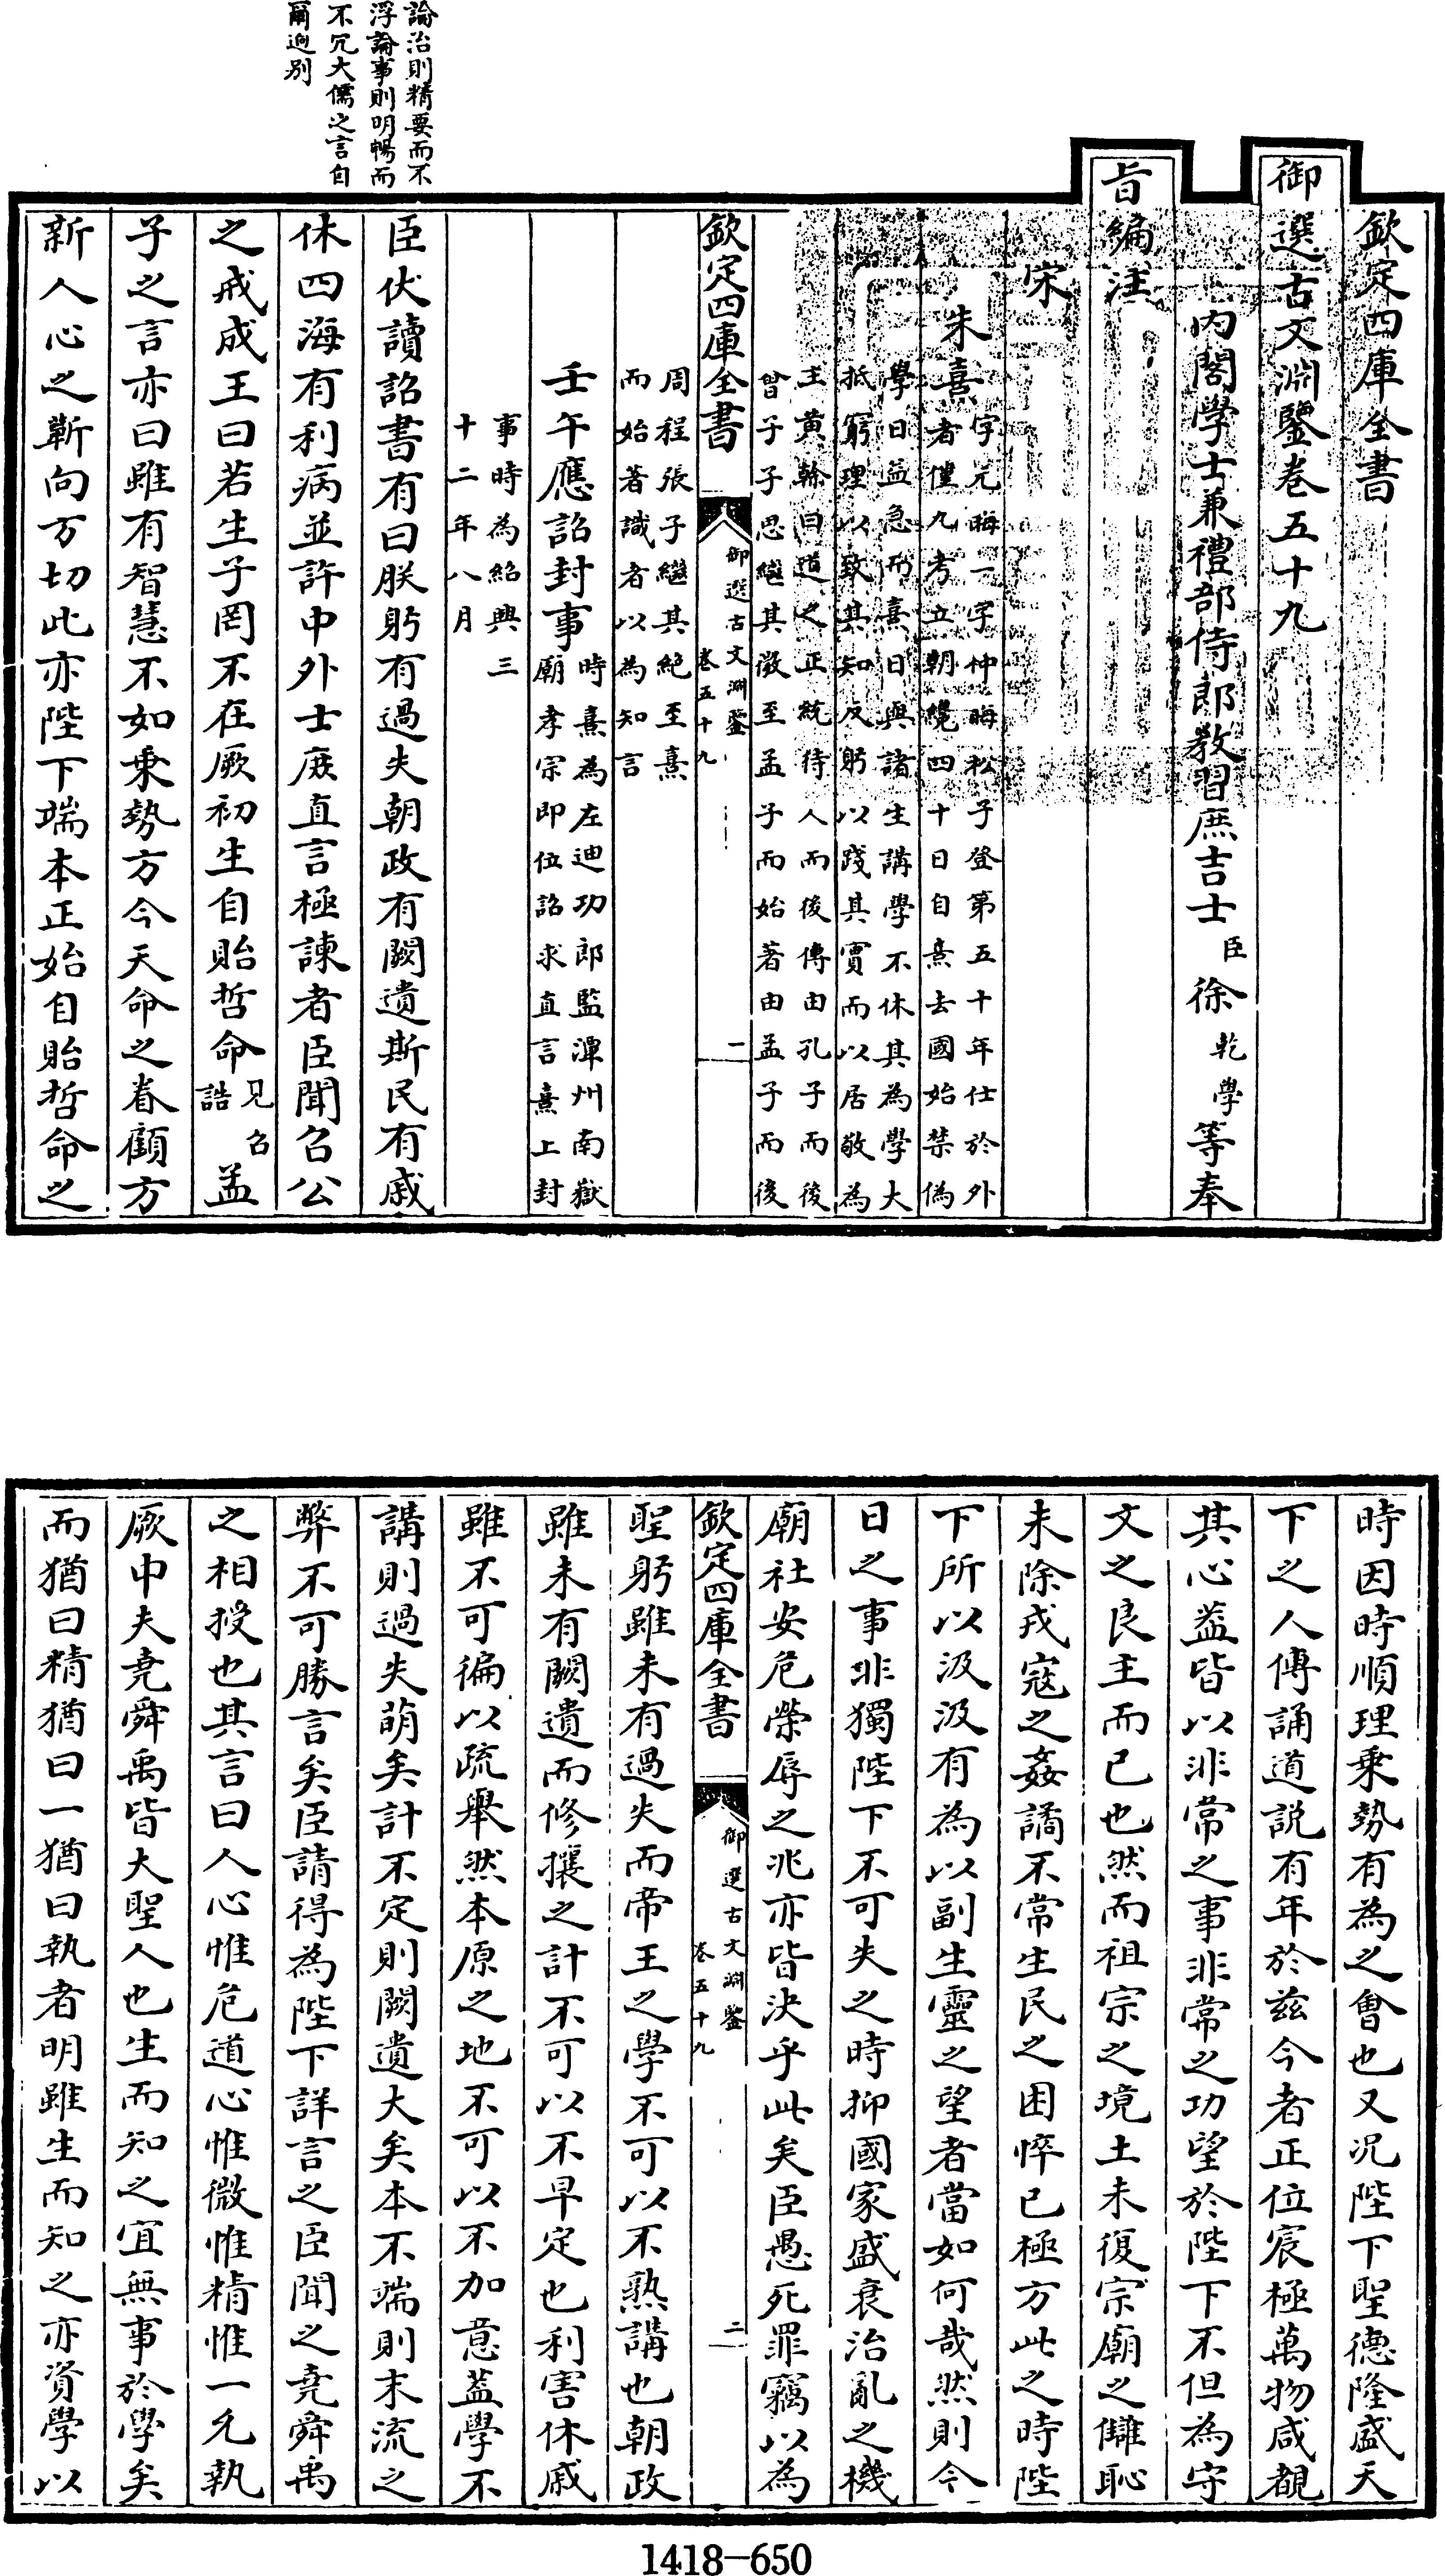 論治則精要而不
浮論事則明暢而
不冗大儒之言自
爾逈别
欽定四庫全書
御選古文淵鑒卷五十九
内閣學士兼禮部侍郎教習庶吉士臣徐乾學等奉
旨編注
宋
朱熹
字元晦一字仲晦松子登第五十年仕於外
者僅九考立朝纔四十日自熹去國始禁偽
學日益急所熹日與諸生講學不休其為學大
抵窮理以致其知反躬以踐其實而以居敬為
主黄榦曰道之正統待人而後傳由孔子而後
曾子子思繼其微至孟子而始著由孟子而後
欽定四庫全書
御選古文淵鑒
卷五十九
一
周程張子繼其絶至熹
而始著識者以為知言
壬午應詔封事
時熹為左迪功郎監潭州南嶽
廟孝宗即位詔求直言熹上封
事時為紹興三
十二年八月
臣伏讀詔書有曰朕躬有過失朝政有闕遺斯民有戚
休四海有利病並許中外士庶直言極諫者臣聞召公
之戒成王曰若生子罔不在厥初生自貽哲命見召誥孟
子之言亦曰雖有智慧不如乗勢方今天命之眷顧方
新人心之蘄向方切此亦陛下端本正始自貽哲命之
時因時順理乗勢有為之會也又况陛下聖德隆盛天
下之人傳誦道説有年於兹今者正位宸極萬物咸覩
其心葢皆以非常之事非常之功望於陛下不但為守
文之良主而已也然而祖宗之境土未復宗廟之讎恥
未除戎寇之姦譎不常生民之困悴已極方此之時陛
下所以汲汲有為以副生靈之望者當如何哉然則今
日之事非獨陛下不可失之時抑國家盛衰治亂之機
廟社安危榮辱之兆亦皆決乎此矣臣愚死罪竊以為
欽定四庫全書
御選古文淵鑒
卷五十九
二
聖躬雖未有過失而帝王之學不可以不熟講也朝政
雖未有闕遺而修攘之計不可以不早定也利害休戚
雖不可徧以疏舉然本原之地不可以不加意葢學不
講則過失萌矣計不定則闕遺大矣本不端則末流之
弊不可勝言矣臣請得為陛下詳言之臣聞之堯舜禹
之相授也其言曰人心惟危道心惟微惟精惟一允執
厥中夫堯舜禹皆大聖人也生而知之宜無事於學矣
而猶曰精猶曰一猶曰執者明雖生而知之亦資學以
1418—650